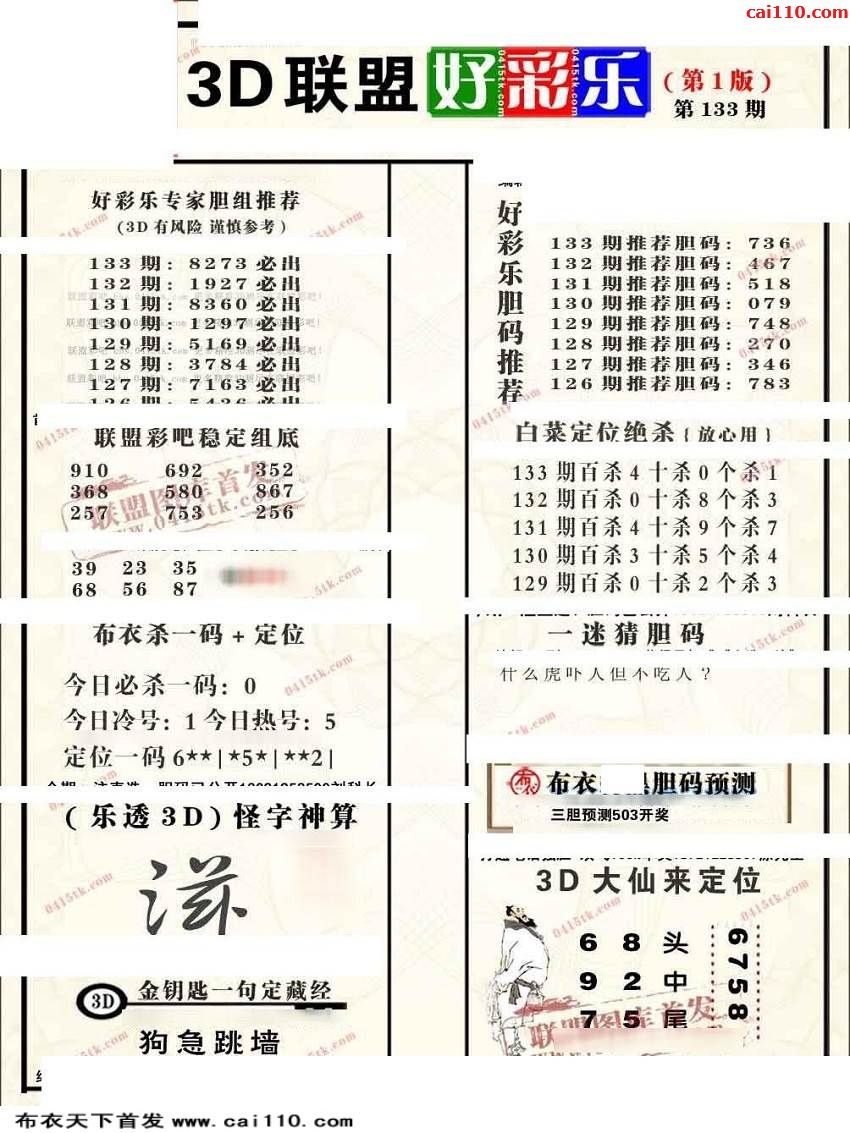 cai110.com
3D联盟好彩乐
(第1版)
第133期
好彩乐专家胆组推荐
(3D有风险 谨慎参考)
133期: 8273必出
132期: 1927必出
131期: 8360必出
130期: 1297必出
129期: 5169必出
128期: 3784必出
127期: 7163必出
联盟彩吧稳定组底
910 692 352
368 580 867
257 753 256
39 23 35
68 56 87
布衣杀一码+定位
今日必杀一码: 0
今日冷号: 1 今日热号: 5
定位一码 6**|*5*|**2|
(乐透3D)怪字神算
滋
3D 金钥匙一句定藏经
狗急跳墙
好彩乐胆码推荐
133期推荐胆码: 736
132期推荐胆码: 467
131期推荐胆码: 518
130期推荐胆码: 079
129期推荐胆码: 748
128期推荐胆码: 270
127期推荐胆码: 346
126期推荐胆码: 783
白菜定位绝杀{放心用}
133期百杀4十杀0个杀1
132期百杀0十杀8个杀3
131期百杀4十杀9个杀7
130期百杀3十杀5个杀4
129期百杀0十杀2个杀3
一迷猜胆码
什么虎吓人但不吃人?
布衣 胆码预测
三胆预测503开奖
3D大仙来定位
6 8 头
9 2 中
7 5 尾
6758
联盟图库首发
www.0415tk.com
0415tk.com
布衣天下首发 www.cai110.com